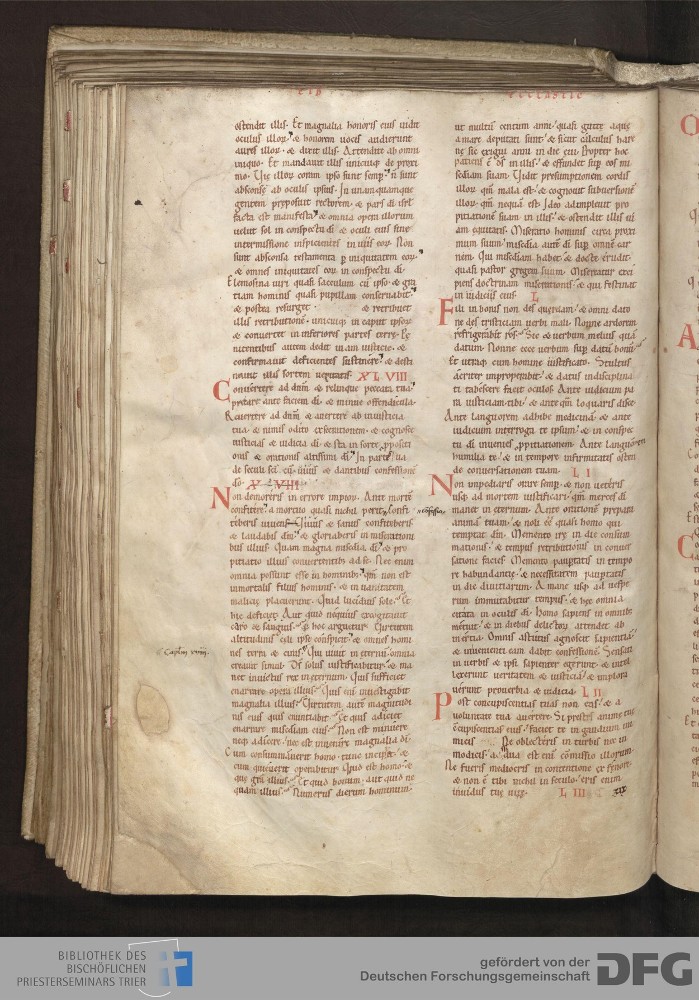 ostendit illis. Et magnalia honoris eius uidit
oculus illoꝝ. & honorem uocis audierunt
aures illoꝝ. & dixit illis. Attendite ab omni
iniquo. Et mandauit illis unicuiq; de proxi
mo. Vie illoꝝ coram ipso sunt semp. ñ sunt
absconse ab oculis ipsius. In unamquamque
gentem preposuit rectorem. & pars di isrł
facta est manifesta. & omnia opera illorum
uelut sol in conspectu di. & oculi eius sine
intermissione inspicientes in uiis eoꝝ. Non
sunt absconsa testamenta ꝑ iniquitatem eoꝝ.
& omnes iniquitates eoꝝ in conspectu di.
Elemosina uiri quasi sacculum cū ipso. & gra
tiam hominis quasi pupillam conseruabit.
& postea resurget. & retribuet
illis retributionē. unicuiq; in caput ipsoꝝ
& conuertet in inferiores partes terre. Pe
nitentibus autem dedit uiam iusticie. &
confirmauit deficientes sustinere. & desti
nauit illis sortem ueritatis. XLVIII
Conuertere ad dnm̄. & relinque peccata tua.
precare ante faciem di. & minue offendicula.
Reuertere ad dnm̄. & auertere ab iniusticia
tua. & nimis odito execrationem. & cognosce
iusticias & iudicia di. & sta in sorte ꝓpositi
onis & orationis altissimi di. In partes uade
seculi sc̄i. cū uiuis & dantibus confessionē
do.
Non demoreris in errore impioꝝ. Ante mortē
confitere. a mortuo quasi nichil perit. Confi
teberis uiuens. Viuus & sanus confiteberis
& laudabis dm̄. & gloriaberis in miserationi
bus illius. Quam magna misc̄dia di. & pro
pitiatio illius conuertentibus ad se. Nec enim
omnia possunt esse in hominibꝫ. qm̄ non est
inmortalis filius hominis. & in uanitatem
malicie placuerunt. Quid lucidius sole. Et
hic deficiet. Aut quid nequius excogitauit
caro & sanguis. & hoc arguetur. Virtutem
altitudinis cęli ipse conspicit. & omnes homi
nes terra & cinis. Qui uiuit in eternū. omnia
creauit simul. Ds̄ solus iustificabitur. & ma
net inuictus rex in eternum. Quis sufficiet
enarrare opera illius. Quis enī inuestigabit
magnalia illius. Virtutem aute magnitudi
nis eius quis enuntiabit. Et quis adiciet
enarrare misc̄diam eius. Non est minuere
neq; adicere. nec est inuenire magnalia di.
Cum consummauerit homo. tunc incipiet. &
cum quieuerit operabitur. Quid est homo. &
que grā illius. Et quid bonum. aut quid ne
quam illius. Numerus dierum hominum.
Capłm xviiij.
ut multū centum anni. quasi gutte aque
amare deputati sunt. & sicut calculus hare
ne sic exigui anni in die eui. Propter hoc
patiens ē ds̄ in illis. & effundet suꝑ eos mi
sc̄diam suam. Vidit presumptionem cordis
illoꝝ qm̄ mala est. & cognouit subuersionē
illoꝝ. qm̄ nequā est. Ideo adimpleuit pro
pitiationē suam in illis. & ostendit illis ui
am equitatis. Miseratio hominis circa proxi
mum suum. misc̄dia autē di suꝑ omnē car
nem. Qui misc̄diam habet & docet & erudit.
quasi pastor gregem suum. Misereatur exci
piens doctrinam miserationis. & qui festinat
in iudiciis eius. L
Fili in bonis non des querelam. & omni dato
ne des tristiciam uerbi mali. Nonne ardorem
refrigerabit ros. Sic & uerbum melius quā
datum. Nonne ecce uerbum suꝑ datū bonū.
Et utraq; cum homine iustificato. Stultus
acriter improperabit. & datus indisciplina
ti tabescere facit oculos. Ante iudicium pa
ra iusticiam tibi. & ante qm̄ loquaris disce.
Ante languorem adhibe medicinā. & ante
iudicium interroga te ipsum. & in conspec
tu di inuenies ꝓpitiationem. Ante languorem
humilia te. & in tempore infirmitatis osten
de conuersationem tuam. LI
Non inpediaris orare semꝑ. & non ueteris
usq; ad mortem iustificari. qm̄ merces di
manet in eternum. Ante orationē prepara
animā tuam. & noli eē quasi homo qui
temptat dm̄. Memento irę in die consum
mationis. & tempus retributionis in conuer
satione faciei. Memento paupertatis in tempo
re habundantię. & necessitatem paupertatis
in die diuitiarum. A mane usq; ad uespe
rum immutabitur tempus. & hęc omnia
citata in oculis di. Homo sapiens in omnibꝫ
metuit. & in diebus delictoꝝ attendet ab
inertia. Omnis astutus agnoscit sapientiā.
& inuenienti eam dabit confessionē. Sensati
in uerbis & ipsi sapienter egerunt. & intel
lexerunt ueritatem & iusticiā. & implora
uerunt prouerbia & iudicia. LII
Post concupiscentias tuas non eas. & a
uoluntate tua auertere. Si prestes anime tue
ccupiscentias eius. faciet te in gaudium ini
micis. Ne oblecteris in turbis nec in
modicis. adsidua est enī cōmissio illorum.
Ne fueris mediocris in contentione ex fenore.
& non ē tibi nichil in seculo. eris enim
inuidus tuę uitę. LIII XIX
BIBLIOTHEK DES
BISCHÖFLICHEN
PRIESTERSEMINARS TRIER
gefördert von der
Deutschen Forschungsgemeinschaft
DFG